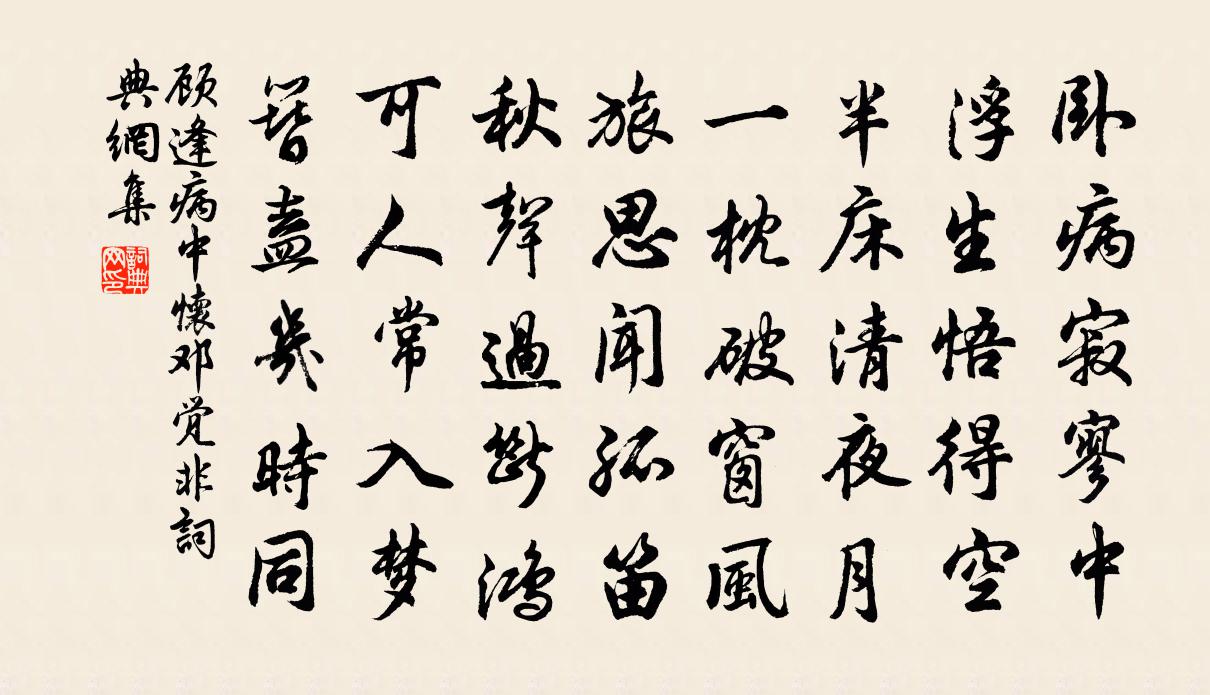 卧病寂寥中
浮生悟得空
半床清夜月
一枕破窗風
旅思聞孤笛
秋聲過斷鴻
可人常入梦
簪盍幾時同
顾逢病中懷邓觉非詞
典網集
詞典
网印